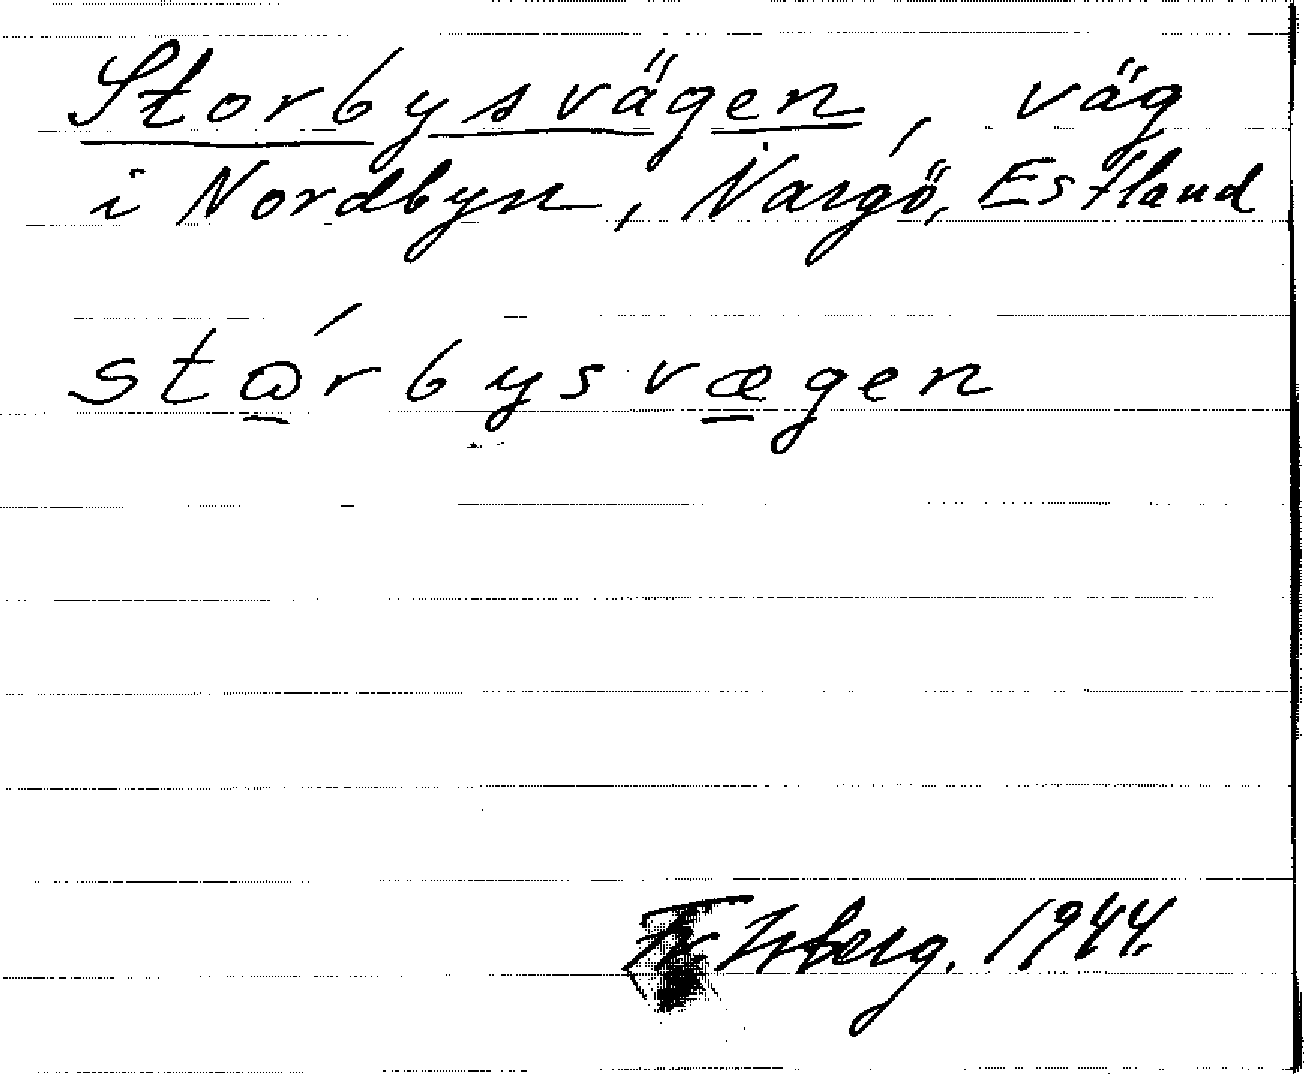 Storbysvägen, väg
i Nordbyn, Nargö, Estland
stώ̲rbysvæ̲gen
Isberg. 1944.